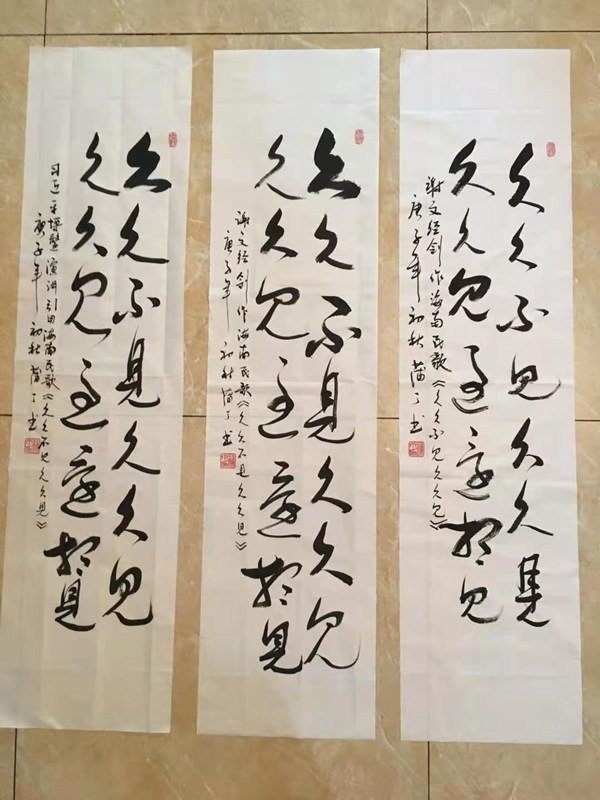 久久不见久久見
久久见過還想见
谢文经创作海南民歌《久久不见久久见》
庚子年初秋 蒲丁书
久久不見久久见
久久见過還想見
谢文经创作海南民歌《久久不见久久見》
庚子年初秋 蒲丁书
久久不見久久见
久久见過還想見
习近平博鳌演讲引用海南民歌《久久不见久久見》
庚子年初秋 蒲丁书